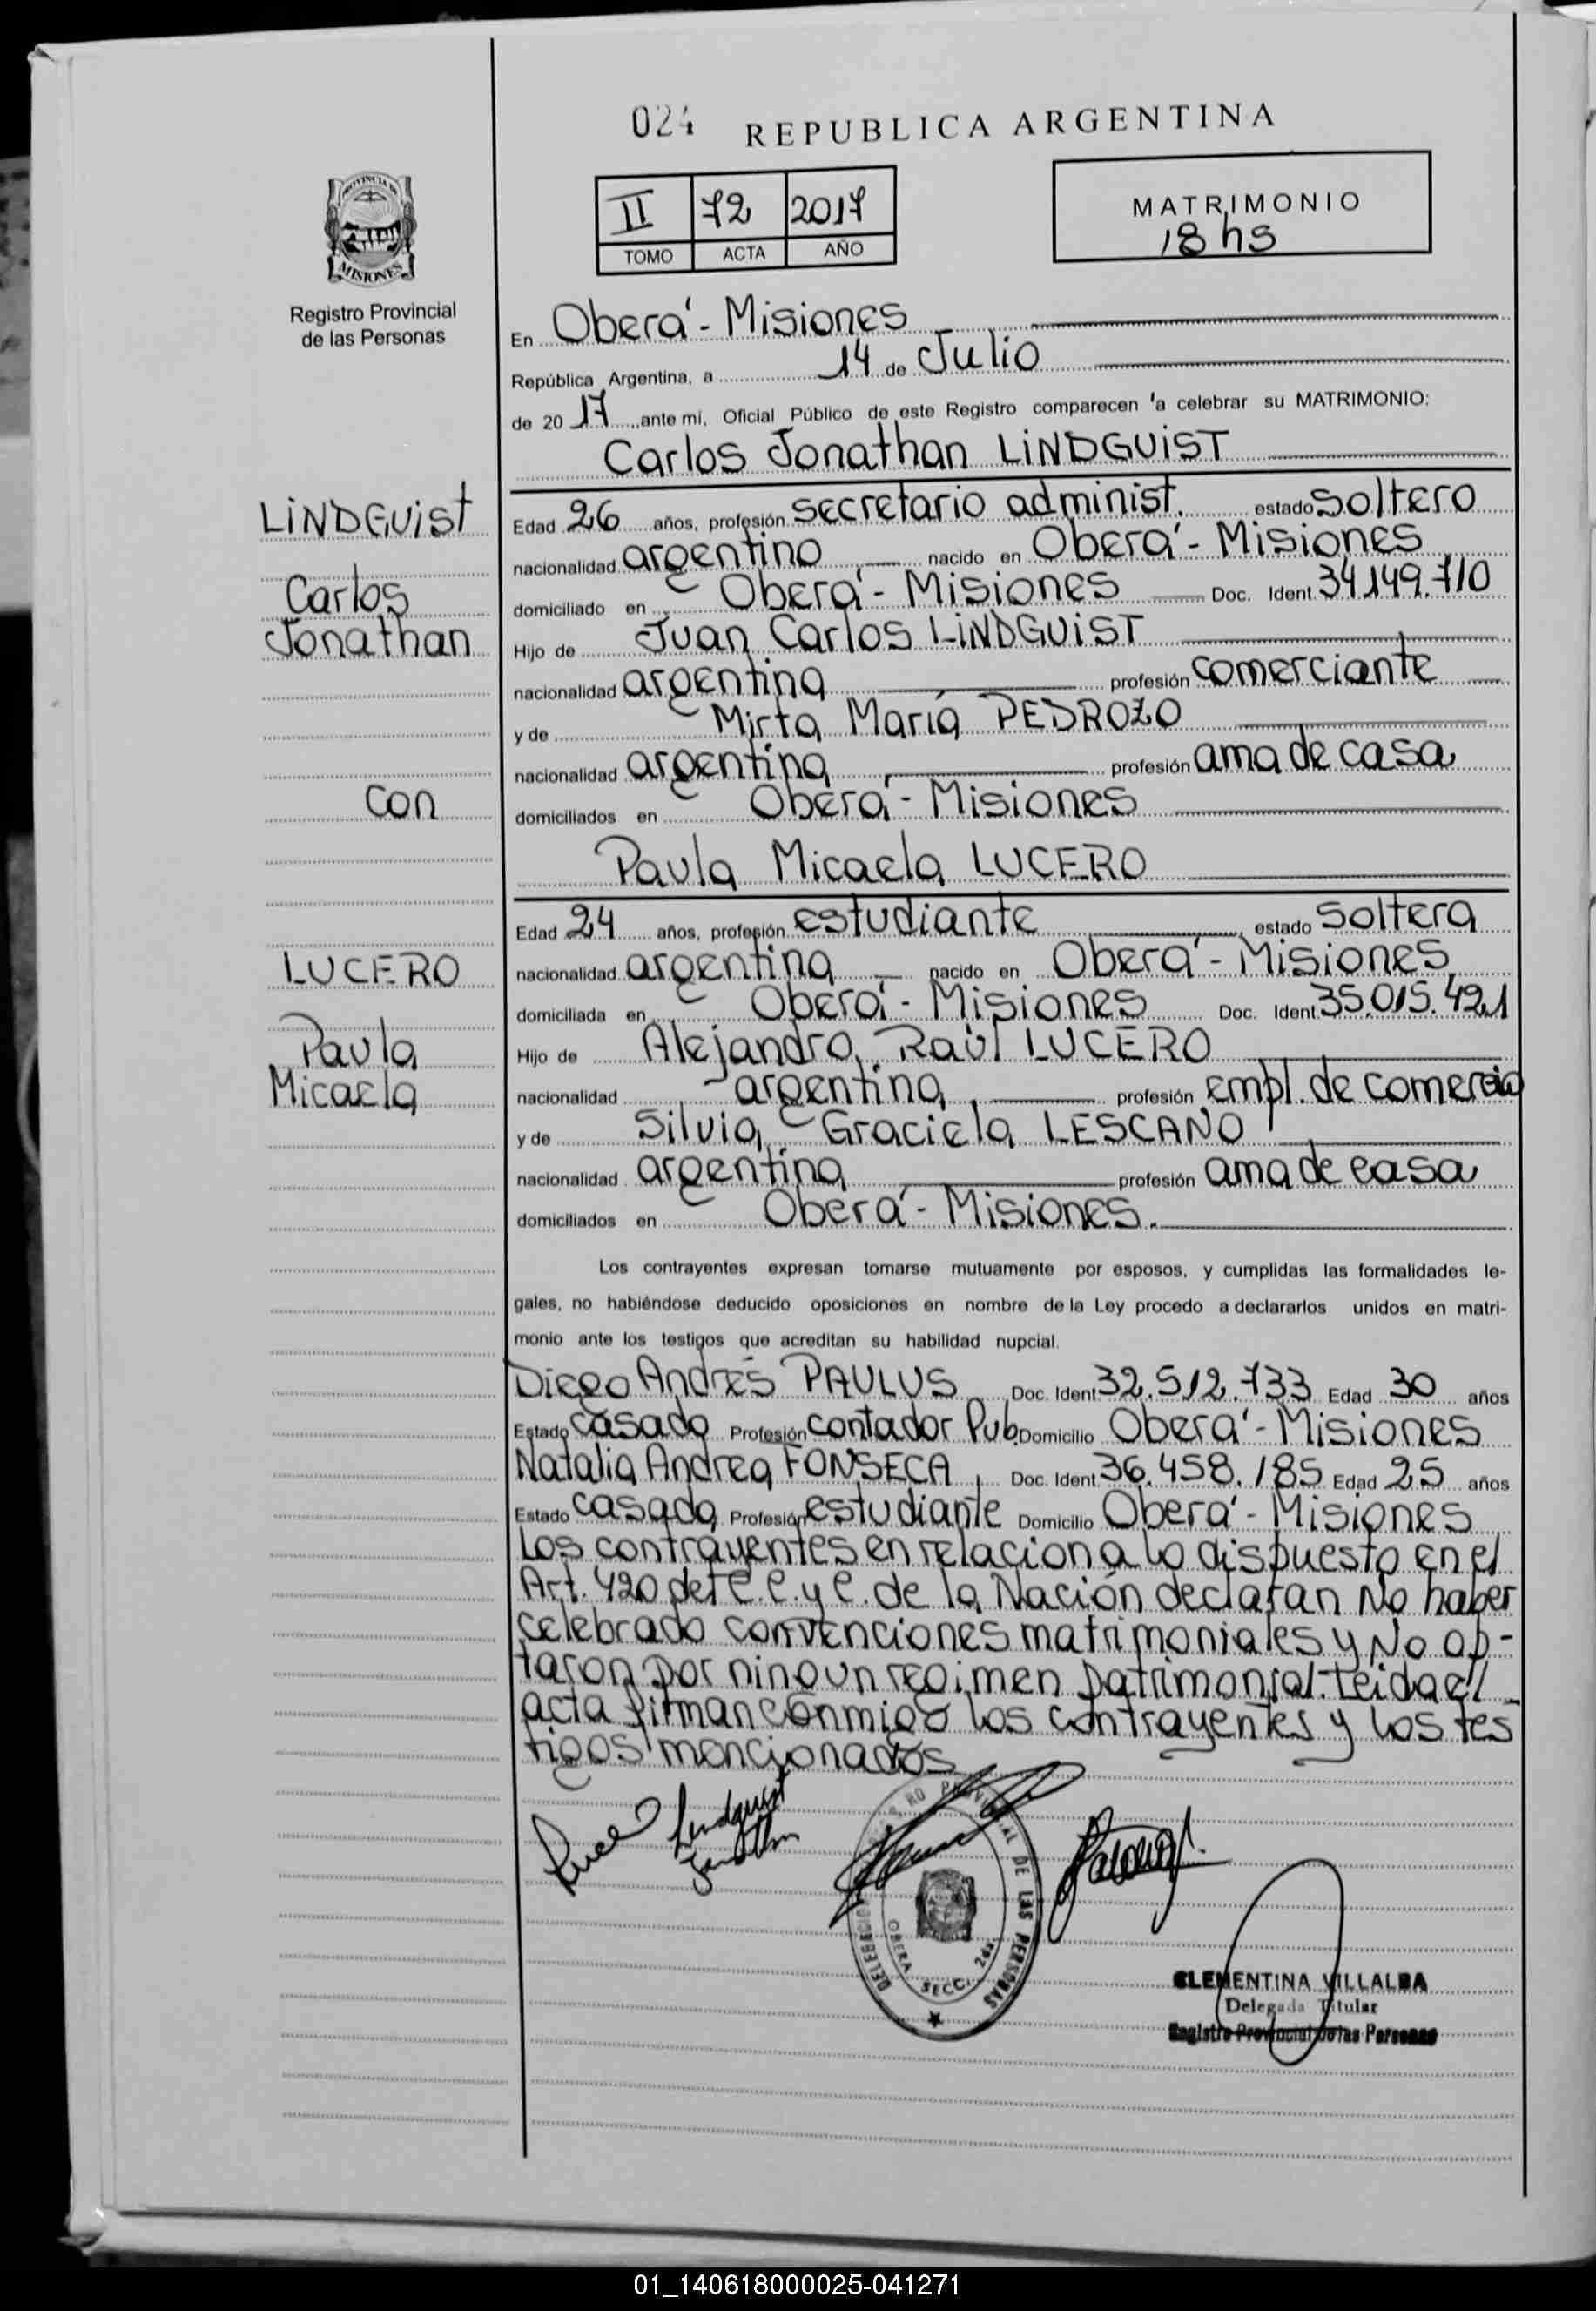 024 REPUBLICA ARGENTINA
PROVINCIA DE
MISIONES
Registro Provincial
de las Personas
II 72 2017
TOMO ACTA AÑO
MATRIMONIO
18 hs
En Oberá - Misiones
República Argentina, a 14 de Julio
de 20 17 ante mí, Oficial Público de este Registro comparecen a celebrar su MATRIMONIO:
Carlos Jonathan LINDGUIST
LINDGUIST
Carlos
Jonathan
con
LUCERO
Paula
Micaela
Edad 26 años, profesión secretario administ. estado soltero
nacionalidad argentino nacido en Oberá - Misiones
domiciliado en Oberá - Misiones Doc. Ident. 34.149.710
Hijo de Juan Carlos LINDGUIST
nacionalidad argentina profesión comerciante
y de Mirta María PEDROZO
nacionalidad argentina profesión ama de casa
domiciliados en Oberá - Misiones
Paula Micaela LUCERO
Edad 24 años, profesión estudiante estado soltera
nacionalidad argentina nacido en Oberá - Misiones
domiciliada en Oberá - Misiones Doc. Ident. 35.015.421
Hijo de Alejandro Raúl LUCERO
nacionalidad argentina profesión empl. de comercio
y de Silvia Graciela LESCANO
nacionalidad argentina profesión ama de casa
domiciliados en Oberá - Misiones.
Los contrayentes expresan tomarse mutuamente por esposos, y cumplidas las formalidades le-
gales, no habiéndose deducido oposiciones en nombre de la Ley procedo a declararlos unidos en matri-
monio ante los testigos que acreditan su habilidad nupcial.
Diego Andrés PAULUS Doc. Ident. 32.512.733 Edad 30 años
Estado casado Profesión contador Pub. Domicilio Oberá - Misiones
Natalia Andrea FONSECA Doc. Ident. 36.458.185 Edad 25 años
Estado casada Profesión estudiante Domicilio Oberá - Misiones
Los contrayentes en relacion a lo dispuesto en el
Art. 420 del C.C. y C. de la Nación declaran No haber
celebrado convenciones matrimoniales y No op-
taron por ningun regimen patrimonial. Leida el
acta firman conmigo los contrayentes y los tes
tigos mencionados
Lindguist
Jonathan
DE LAS PERSONAS
OBERA SECC. 2da
CLEMENTINA VILLALBA
Delegada Titular
Registro Provincial de las Personas
01_140618000025-041271